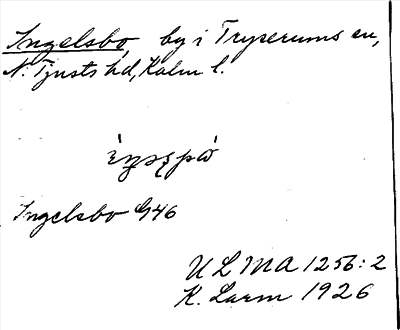 Ingelsbo, by i Tryserums sn,
N. Tjusts hd, Kalm l.
Ingelsbo G46
ULMA 1256:2
K. Larm 1926